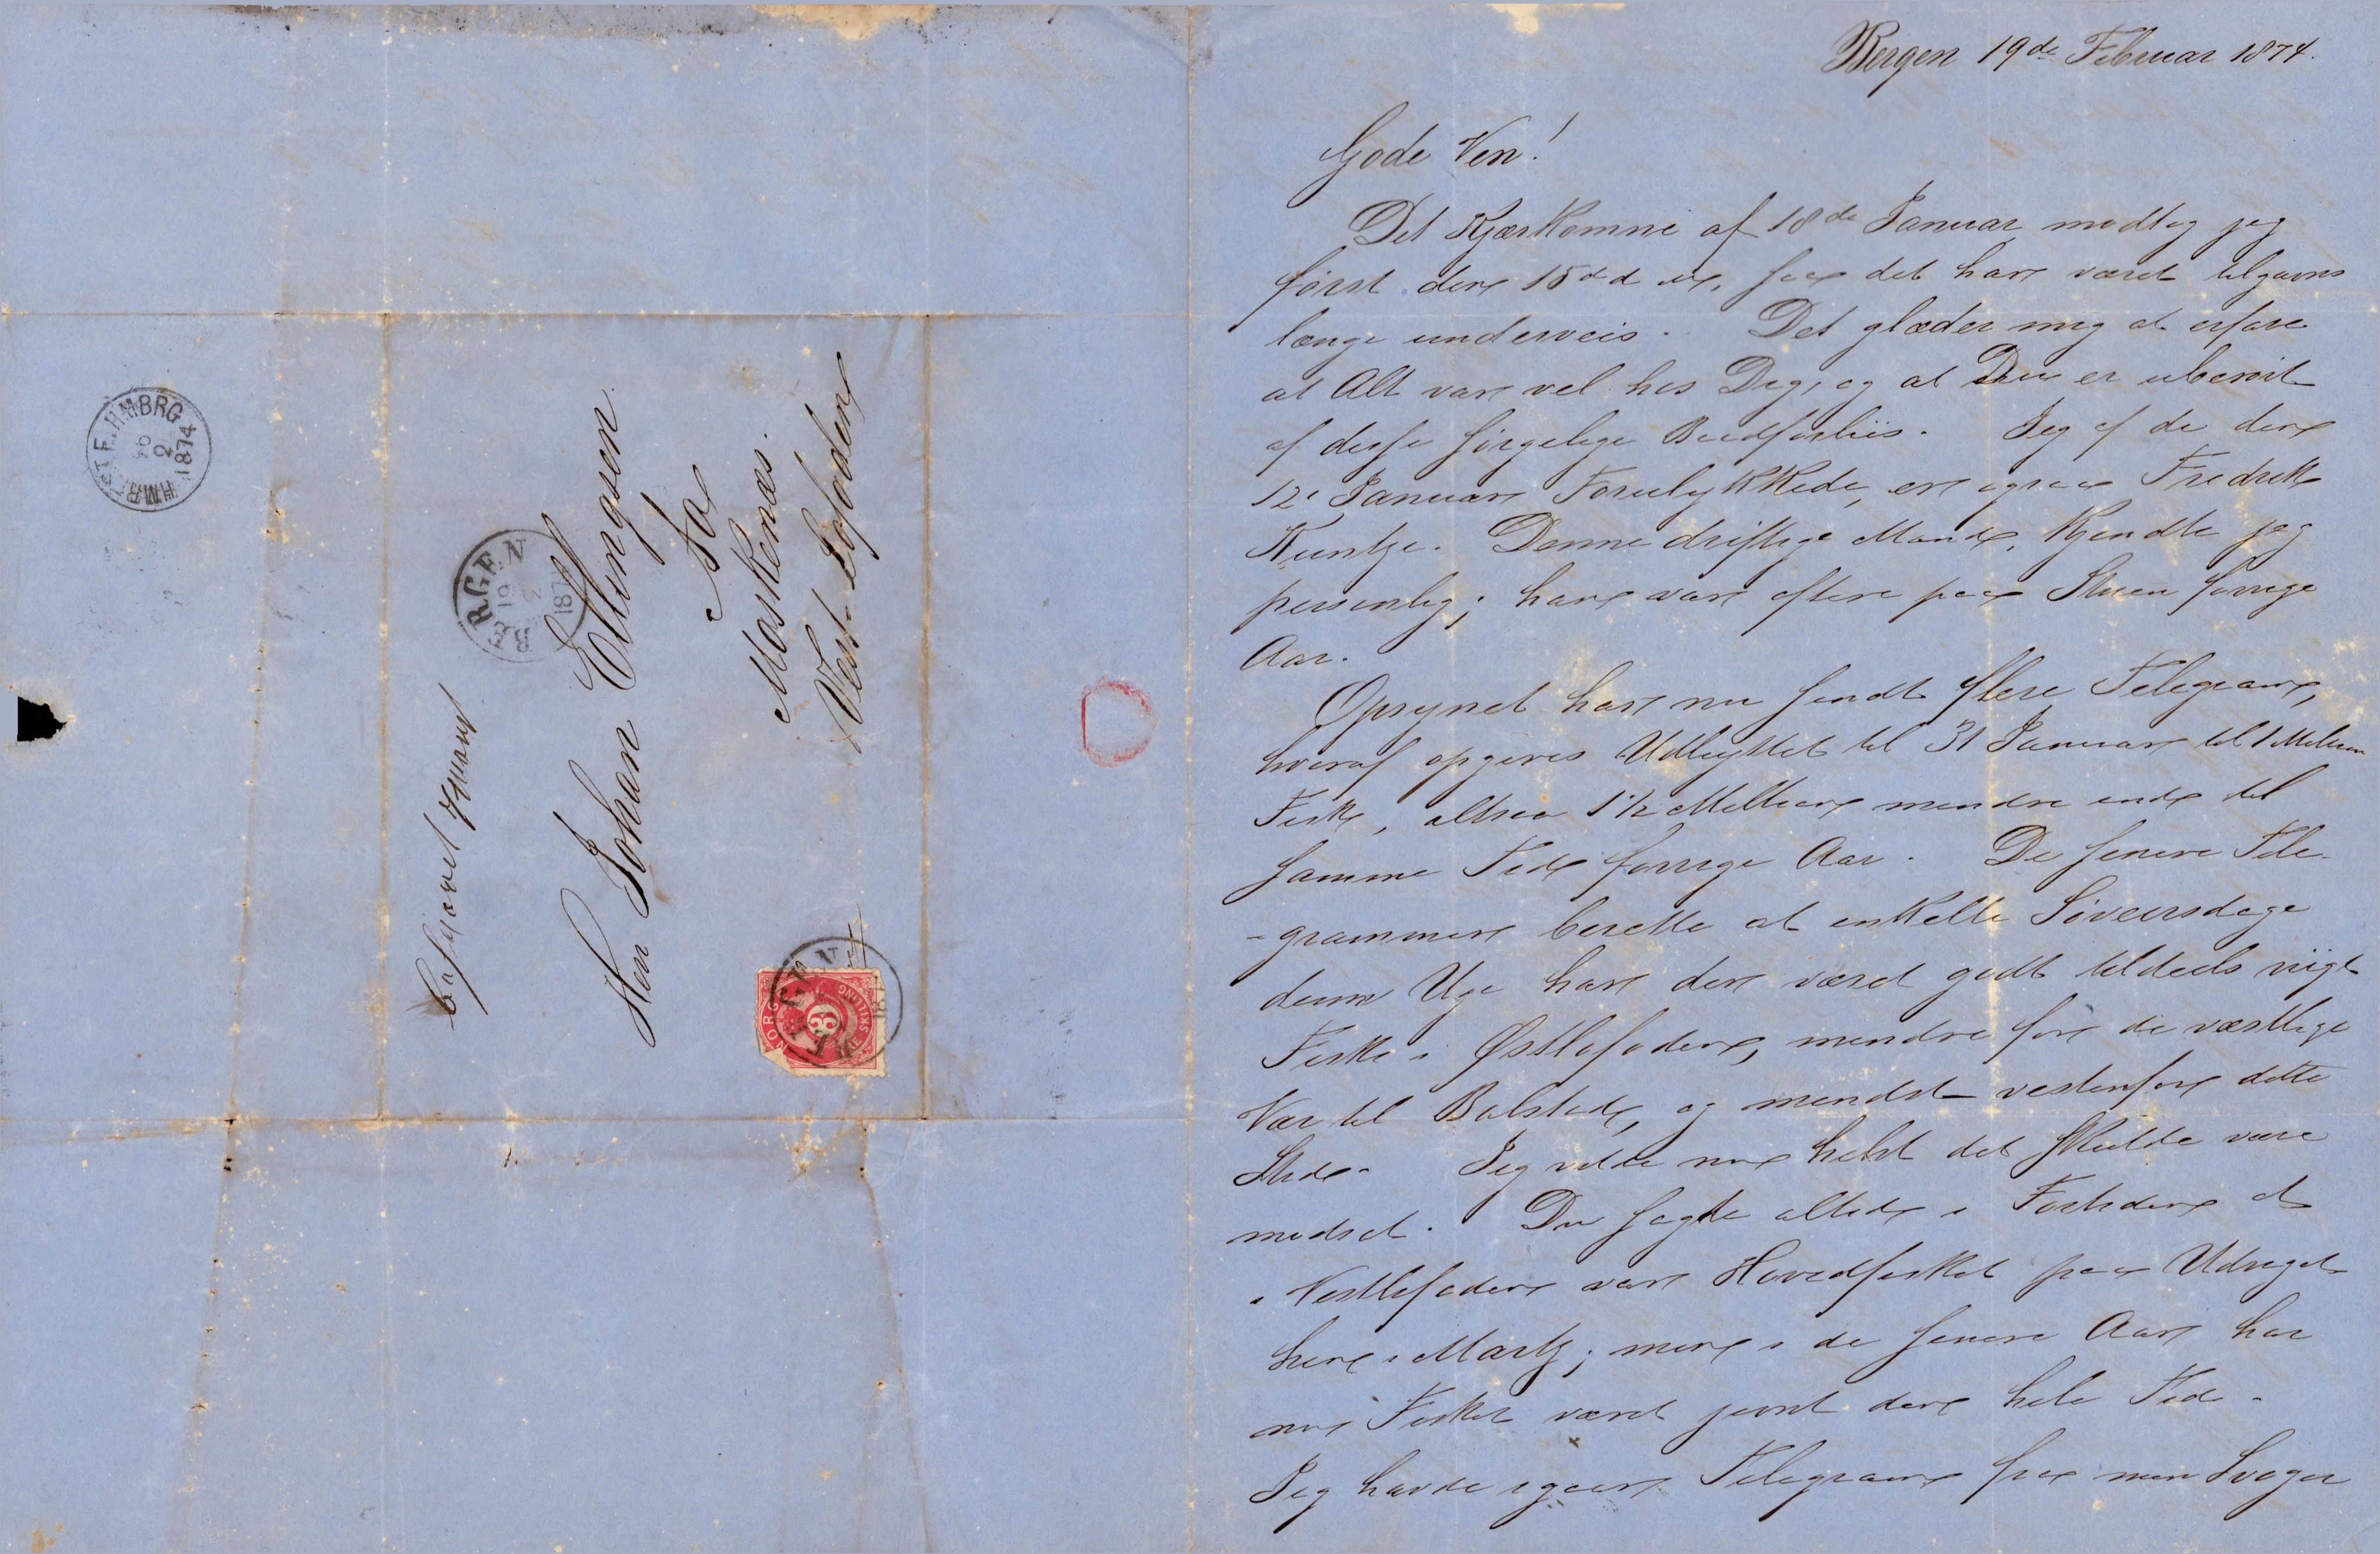 Bergen 19de Februar 1874.
Gode Ven!
Det Kjærkomne af 18de Januar modtog jeg
først den 15de ds, saa det har været
længe underveis. Det glæder mig at erfare
at Alt var vel hos Dig, og at Du er uberørt
af disse sørgelige Baadforliis. Jeg af de den
12 Januar Forulykkede, er ogsaa Fredrik
Kuntze. Denne driftige Mand, kjendte jeg
personlig; han var oftere paa Stuen forrige
Aar.
Opsynet har nu sendt flere Telegram,
hvoraf opgives Udbyttet til 31 Januar til 1 Million
Fisk, altsaa 1 1/2 Million mindre end til
samme Tid forrige Aar. De senere Tele-
-grammer berette at enkelte Søveirsdage
denne Uge har der været godt tildeels rigt
Fiske i Østlofoden, mindre for de væstlige
Vær til Balstad, og mindst vestenfor dette
Sted. Jeg vilde nu helst det skulde være
modsat. Du sagde altid i Fortiden at
i Vestlofoden var Hovedfisket paa Udsiget
hen i Marts; men i de senere Aar har
nu Fisket været jevnt den hele Tid.
Jeg havde igaar Telegram fra min Svoger
Herr Johan Ellingsen
Aa
Moskenæs.
Vest-Lofoden
BERGEN
19
2
1874
HMBRG
26
2
1874
NORGE
3
SKILLING
BERGEN